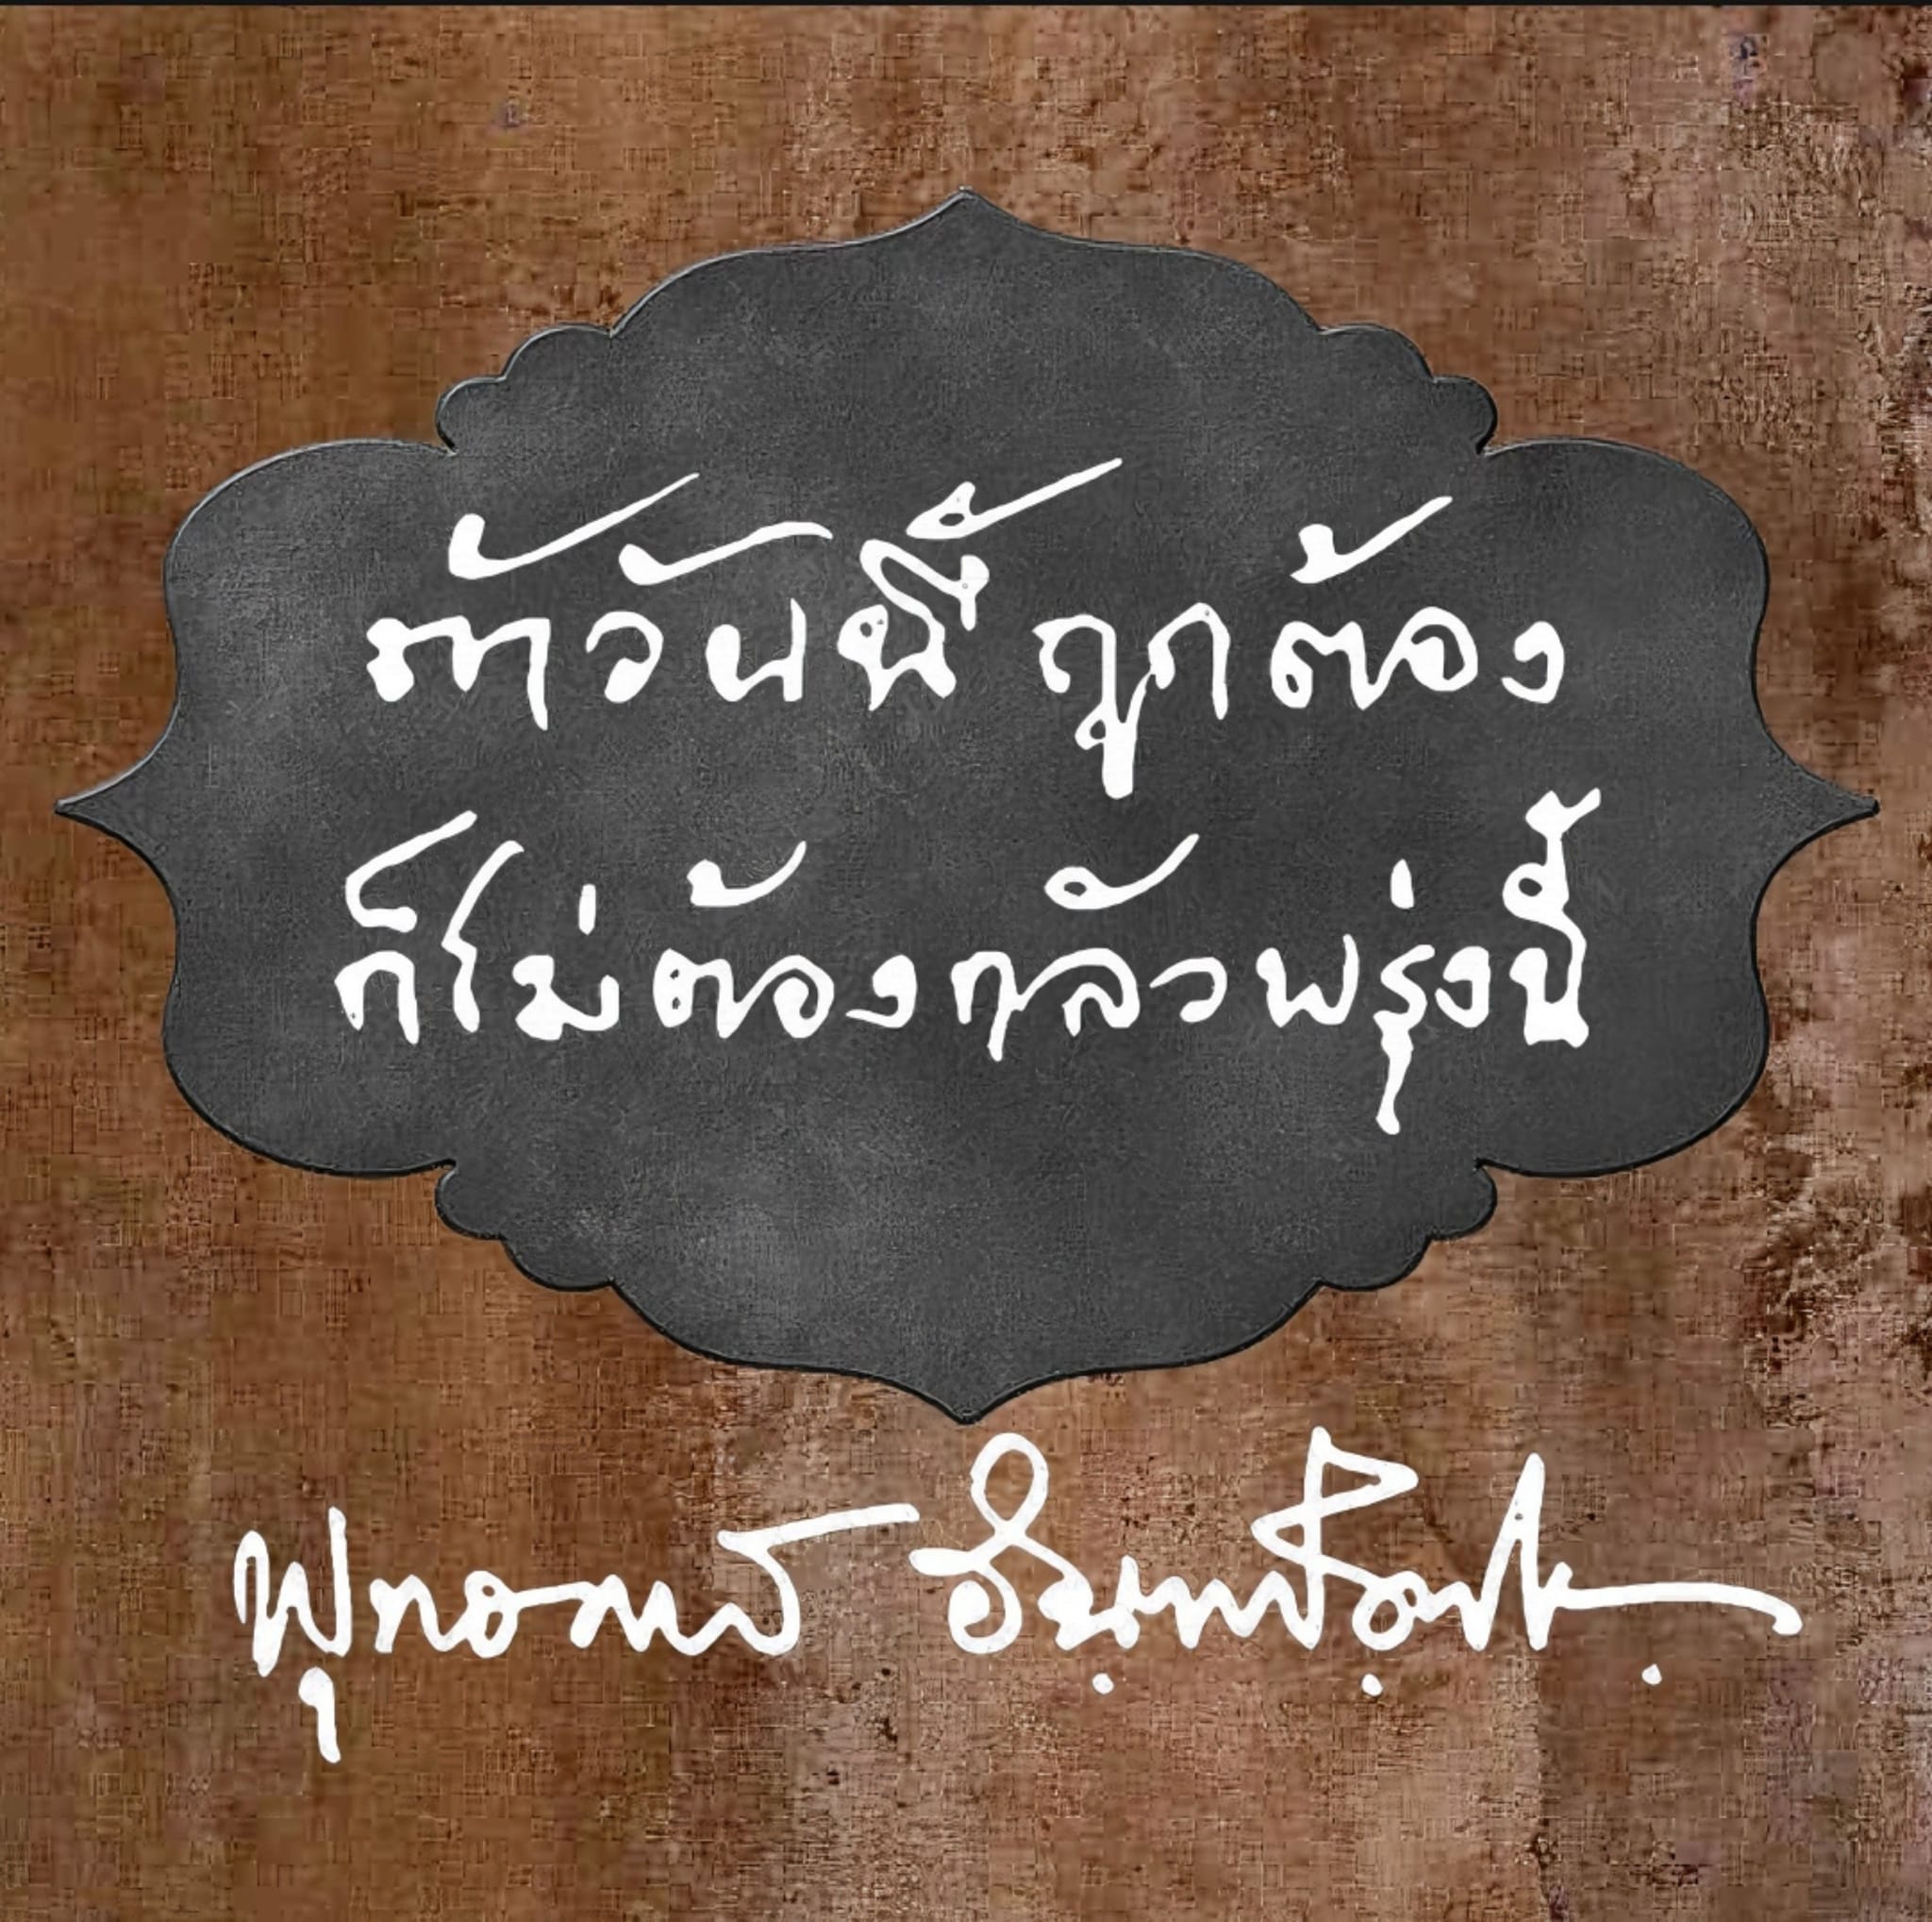 ถ้าวันนี้ ถูกต้อง
ก็ไม่ต้องกลัวพรุ่งนี้
พุทธทาส อินทปัญโญ